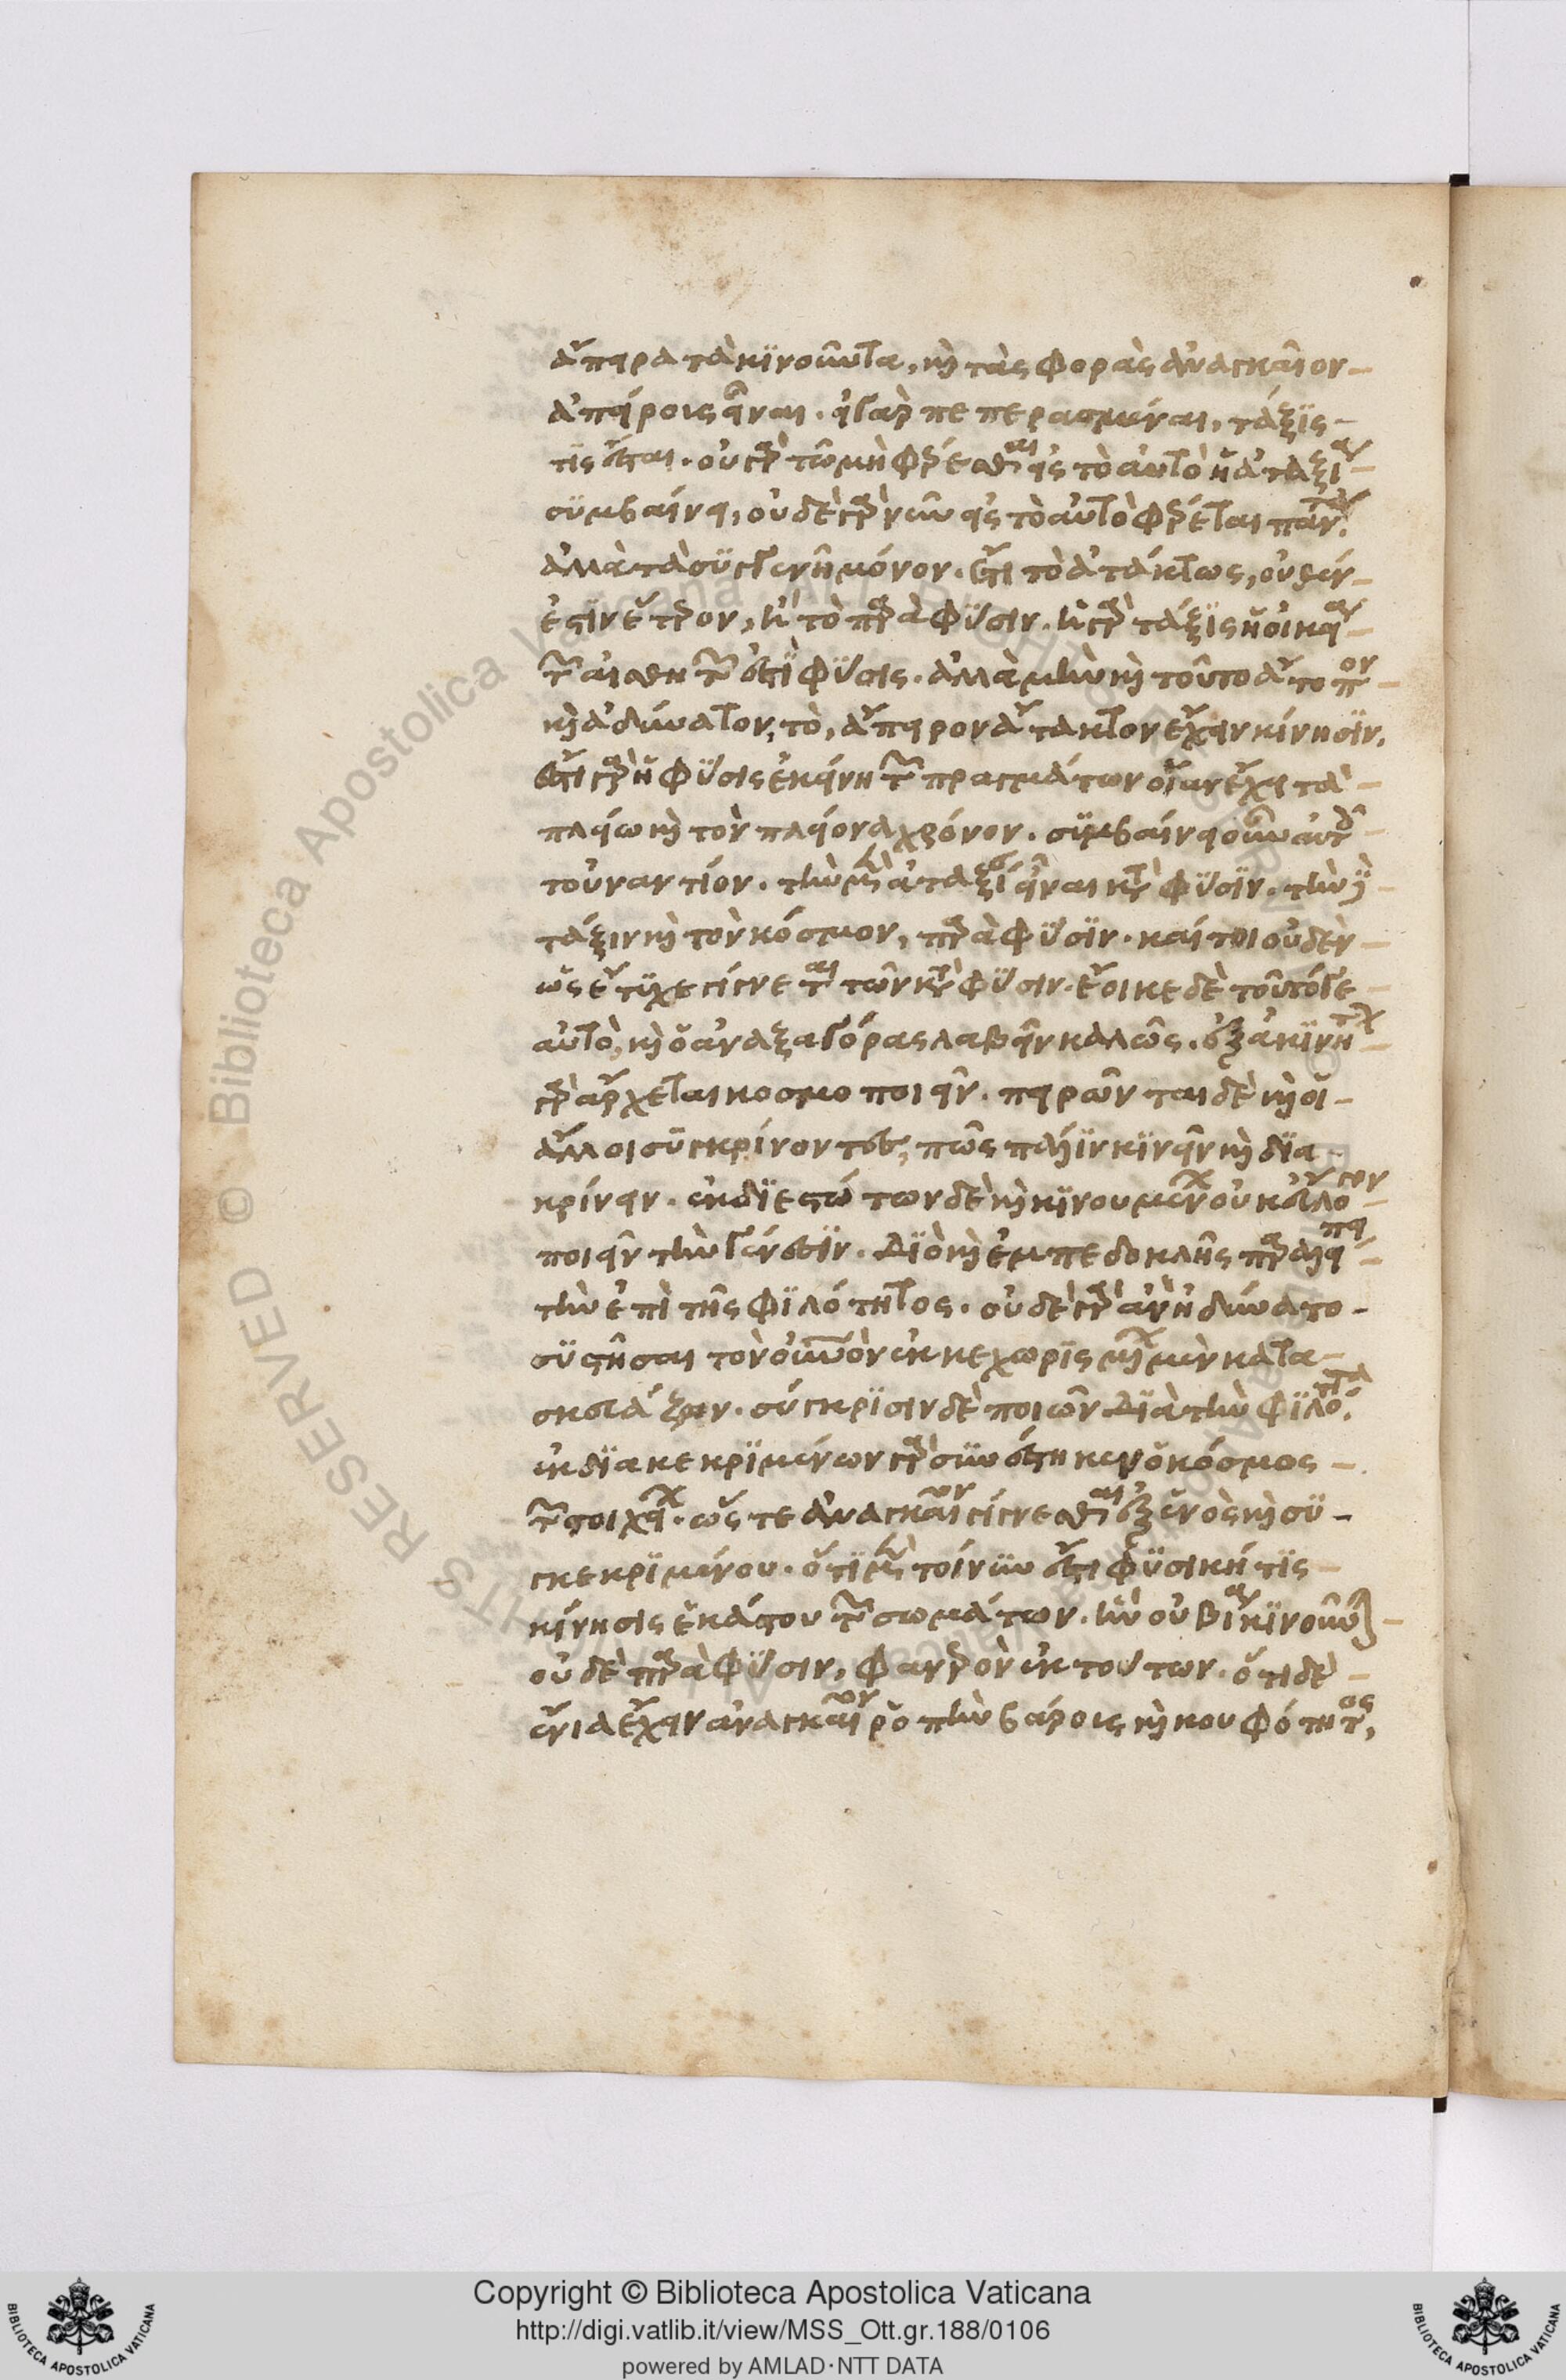 ἄπειρα τὰ κινοῦντα, καὶ τὰς φορὰς ἀναγκαῖον
ἀπείροις εἶναι. εἰ γὰρ πεπερασμέναι, τάξις
τὶς ἔσται. οὐ γὰρ τῶ μὴ φέρεσθαι εἰς τὸ αὐτὸ ἡ ἀταξία
συμβαίνει, οὐδὲ γὰρ νῦν εἰς τὸ αὐτὸ φέρεται πάντα.
ἀλλὰ τὰ συγγενῆ μόνον. ἔτι τὸ ἀτάκτως, οὐθέν
ἐστιν ἕτερον, ἢ τὸ παρὰ φύσιν. ἡ γὰρ τάξις ἡ οἰκεία
τῶν αἰσθητῶν ἐστὶ φύσις. ἀλλὰ μὴν καὶ τοῦτο ἄτοπον
καὶ ἀδύνατον, τὸ, ἄπειρον ἄτακτον ἔχειν κίνησιν.
ἔστι γὰρ ἡ φύσις ἐκείνη τῶν πραγμάτων οἵαν ἔχει τὰ
πλείω καὶ τὸν πλείονα χρόνον. συμβαίνει οὖν αὐτοῖς
τοὐναντίον. τὴν μὲν ἀταξίαν εἶναι κατὰ φύσιν. τὴν δὲ
τάξιν καὶ τὸν κόσμον, παρὰ φύσιν. καίτοι οὐδὲν
ὡς ἔτυχε γίγνεται τῶν κατὰ φύσιν. ἔοικε δὲ τοῦτό γε
αὐτὸ, καὶ ὁ ἀναξαγόρας λαβεῖν καλῶς. ἐξ ἀκινήτων
γὰρ ἄρχεται κοσμοποιεῖν. πειρῶνται δὲ καὶ οἱ
ἄλλοι συγκρίνοντες, πῶς πάλιν κινεῖν καὶ δια
κρίνειν. ἐκ διεστώτων δὲ καὶ κινουμένων οὐκ εὔλογον
ποιεῖν τὴν γένεσιν. διὸ καὶ ἐμπεδοκλῆς παραλείπει
τὴν ἐπὶ τῆς φιλότητος. οὐδὲ γὰρ ἂν ἠδύνατο
συστῆσαι τὸν οὐνὸν ἐκ κεχωρισμένων μὲν κατα
σκευάζων. σύγκρισιν δὲ ποιῶν διὰ τὴν φιλότητα.
ἐκ διακεκριμένων γὰρ συνέστηκεν ὁ κόσμος
τῶν στοιχείων. ὥστε ἀναγκαῖον γίγνεσθαι ἐξ ἑνὸς καὶ συ
γκεκριμένου. ὅτι μὲν τοίνυν ἔστι φυσική τις
κίνησις ἑκάστου τῶν σωμάτων. ἣν οὐ βία κινοῦνται
οὐδὲ παρὰ φύσιν, φανερὸν ἐκ τούτων. ὅτι δὲ
ἔνια ἔχειν ἀναγκαῖον ῥοπὴν βάροις καὶ κουφότητος,
Copyright © Biblioteca Apostolica Vaticana
http://digi.vatlib.it/view/MSS_Ott.gr.188/0106
powered by AMLAD·NTT DATA